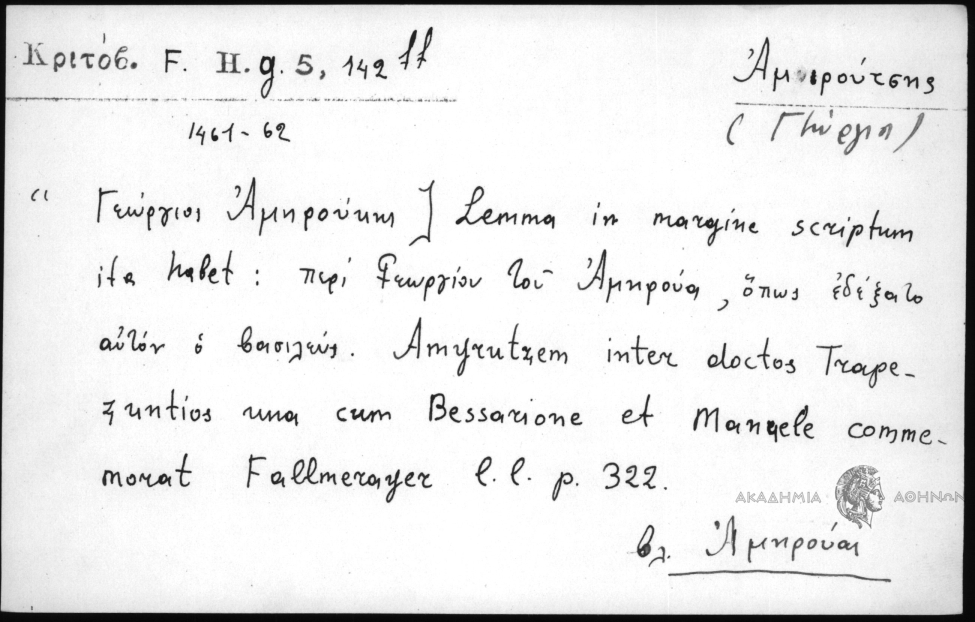 Κριτόβ. F. H. g. 5, 142 ff
Ἀμιρούτσης
1461-62
(Γεώργιος)
“ Γεώργιος Ἀμηρούκης] Lemma in margine scriptum
ita habet: περί Γεωργίου τοῦ Ἀμηρούα, ὅπως ἐδέξατο
αὐτόν ὁ βασιλεύς. Amyrutzem inter doctos Trape-
zuntios una cum Bessarione et Manuele comme-
morat Fallmerayer l. l. p. 322.
ΑΚΑΔΗΜΙΑ ΑΘΗΝΩΝ
βλ. Ἀμηρούας